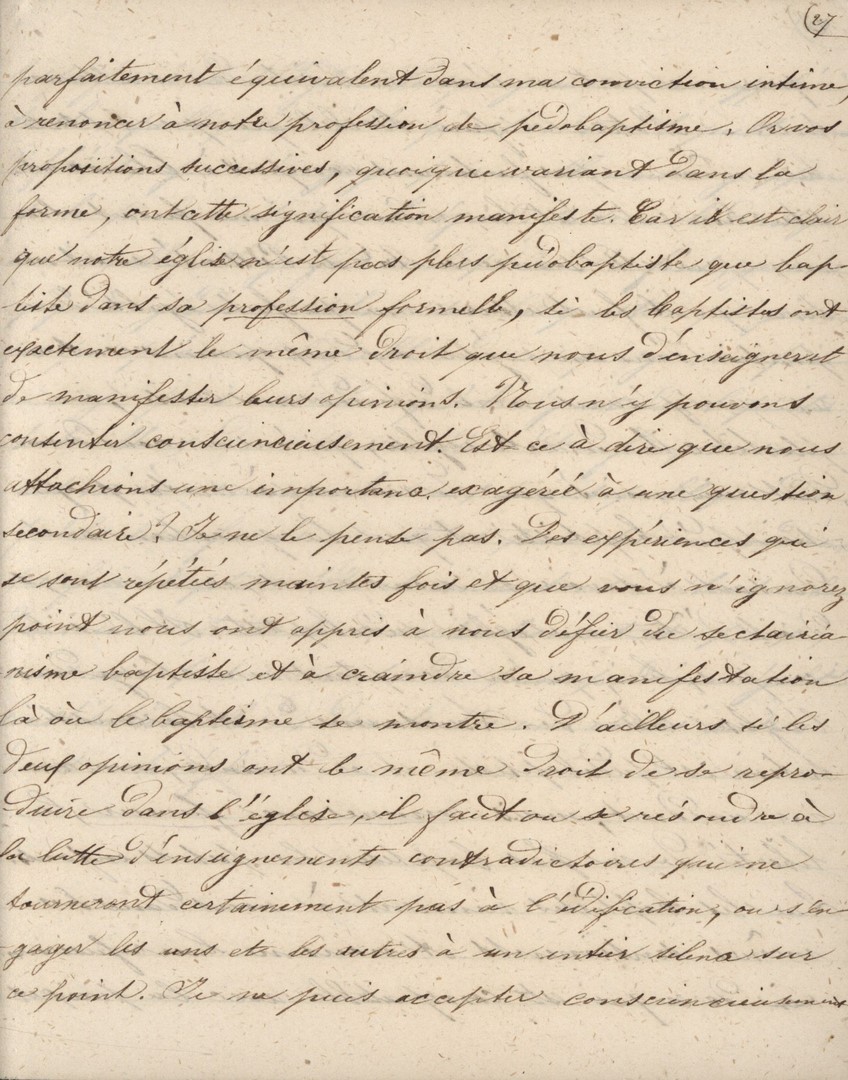 27
parfaitement équivalent dans ma conviction intime,
à renoncer à notre profession de pédobaptisme. Or vos
propositions successives, quoique variant dans la
forme, ont cette signification manifeste. Car il est clair
que notre église n'est pas plus pédobaptiste que bap-
tiste dans sa profession formelle, si les baptistes ont
exactement le même droit que nous d'enseigner et
de manifester leurs opinions. Nous n'y pouvons
consentir consciencieusement. Est ce à dire que nous
attachions une importance exagérée à une question
secondaire? Je ne le pense pas. Des expériences qui
se sont répétées maintes fois et que vous n'ignorez
point nous ont appris à nous défier du sectairia-
nisme baptiste et à craindre sa manifestation
là où le baptisme se montre. D'ailleurs si les
deux opinions ont le même droit de se repro-
duire dans l'église, il faut ou se résoudre à
la lutte d'enseignements contradictoires qui ne
tourneront certainement pas à l'édification, ou s'en
gager les uns et les autres à un entier silence sur
ce point. Je ne puis accepter consciencieusement